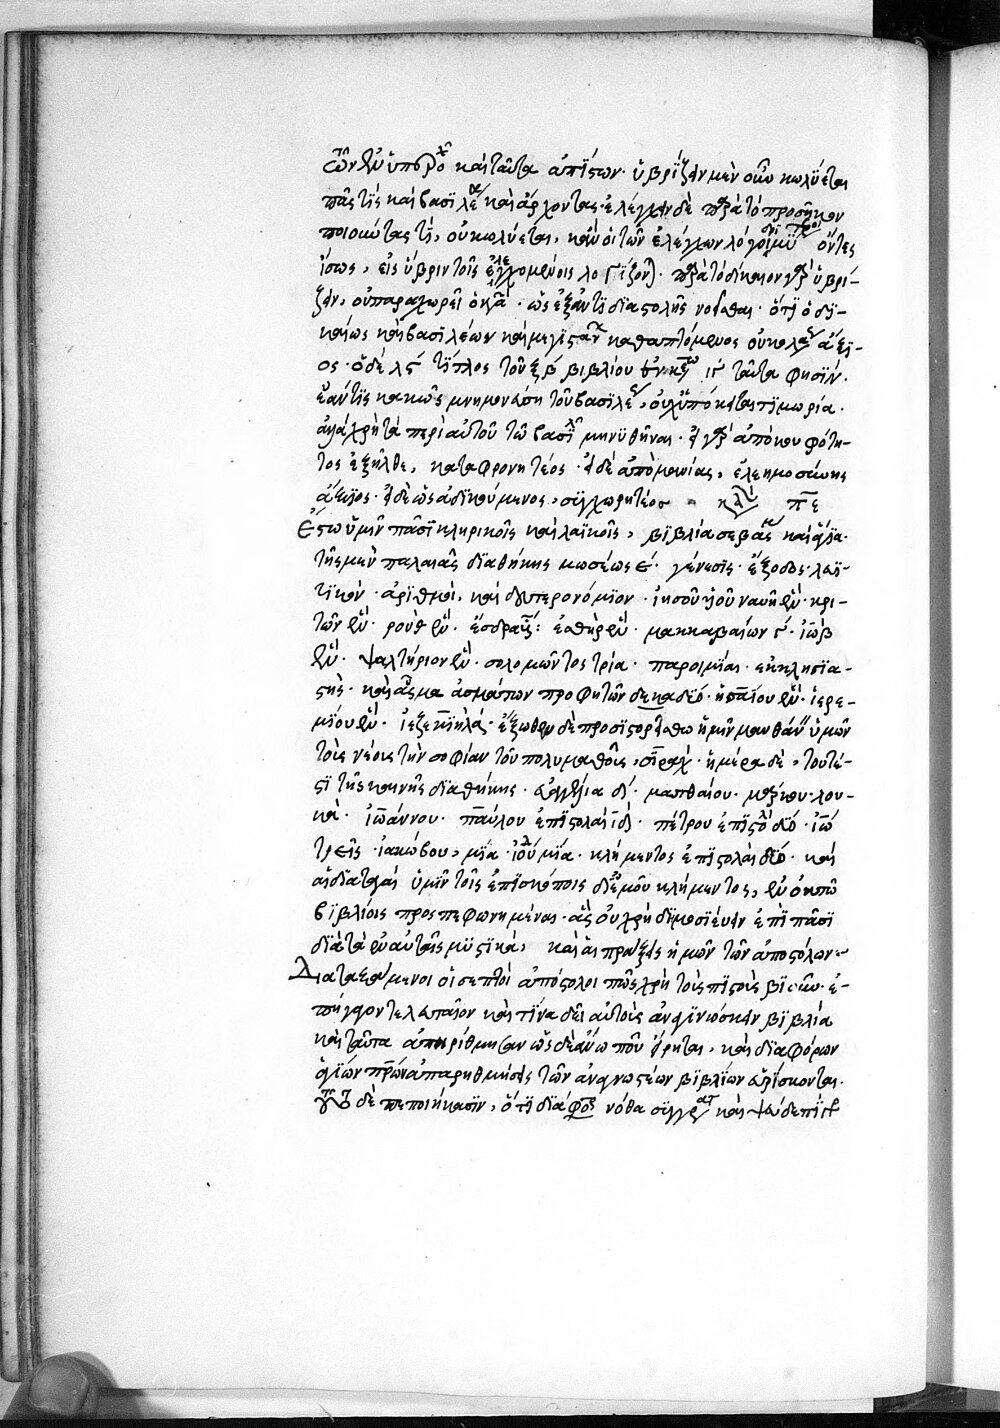 καὶ ταῦτα ἀπίστων· ὑβρίζειν μὲν οὖν κωλύεται
πᾶς τίς καὶ βασιλέας καὶ ἄρχοντας· ἐλέγχειν δὲ παρὰ τὸ προσῆκον
ποιοῦντάς τι, οὐ κωλύεται, κἂν οἱ τῶν ἐλέγχων λόγοι ὄντες
ἴσως, εἰς ὕβριν τοῖς ἐλεγχομένοις λογίζονται· παρὰ τὸ δίκαιον γὰρ ὑβρί-
ζειν, οὐ παραχωρεῖ ὁ κανών· ὡς ἐξ ἀντιδιαστολῆς νοεῖσθαι· ὅτι ὁ δι-
καίως καὶ βασιλέων καὶ μεγιστάνων καθαπτόμενος οὐ κολάσεως ἄξι-
ος· ὁ δὲ λς τίτλος τοῦ ξβ βιβλίου ταῦτα φησίν·
ἐάν τις κακῶς μνημονεύσῃ τοῦ βασιλέως, οὐχ ὑπόκειται τιμωρία·
ἀλλὰ χρὴ τὰ περὶ αὐτοῦ τῷ βασιλεῖ μηνυθῆναι· εἰ γὰρ ἀπὸ κουφότη-
τος ἐξῆλθε, καταφρονητέος· εἰ δὲ ἀπὸ μανίας, ἐλεημοσύνης
ἄξιος· εἰ δὲ ὡς ἀδικούμενος, συγχωρητέος κε πε
Ἔστω ὑμῖν πᾶσι κληρικοῖς καὶ λαϊκοῖς, βιβλία σεβάσμια καὶ ἅγια·
τῆς μὲν παλαιᾶς διαθήκης μωσέως ε· γένεσις· ἔξοδος· λευϊ-
τικὸν· ἀριθμοὶ, καὶ δευτερονόμιον· ἰησοῦ υἱοῦ ναυῆ ἕν· κρι-
τῶν ἕν· ροὺθ ἕν· ἐσθὴρ ἕν· μακκαβαίων γ· ἰὼβ
ἕν· ψαλτήριον ἕν· σολομῶντος τρία· παροιμίαι· ἐκκλησια-
στής· καὶ ἆσμα ἀσμάτων προφητῶν δεκαδύο· ἡσαΐου ἕν· ἱερε-
μίου ἕν· ἰεζεκιὴλ· ἔξωθεν δὲ προσιστορείσθω ὑμῖν μανθάνειν ὑμῶν
τοὺς νέους τὴν σοφίαν τοῦ πολυμαθοῦς σιράχ· ἡμέτερα δὲ, τουτέ-
στι τῆς καινῆς διαθήκης· εὐαγγέλια δ· ματθαίου· μάρκου· λου-
κᾶ· ἰωάννου· παύλου ἐπιστολαὶ ιδ· πέτρου ἐπιστολαὶ δύο· ἰω
τρεῖς· ἰακώβου, μία· ἰούδα μία· κλήμεντος ἐπιστολαὶ δύο· καὶ
αἱ διαταγαὶ ὑμῖν τοῖς ἐπισκόποις δι' ἐμοῦ κλήμεντος, ἐν ὀκτὼ
βιβλίοις προσπεφωνημέναι· ἃς οὐ χρὴ δημοσιεύειν ἐπὶ πᾶσι
διὰ τὰ ἐν αὐταῖς μυστικά, καὶ αἱ πράξεις ἡμῶν τῶν ἀποστόλων·
Διαταξάμενοι οἱ σεπτοὶ ἀπόστολοι πῶς χρὴ τοὺς πιστοὺς βιοῦν· ἐ-
πήγαγον τελευταῖον καὶ τίνα δεῖ αὐτοὺς ἀναγινώσκειν βιβλία
καὶ ταῦτα ἀπηρίθμησαν ὡς δὲ ἄνω που εἴρηται, καὶ διαφόρων
ἁγίων πατέρων ἀπαρηθμήσεις τῶν ἀναγνωστέων βιβλίων εὑρίσκονται·
τοῦτο δὲ πεποιήκασιν, ὅτι διάφορα νόθα συγγράμματα καὶ ψευδεπίγρ